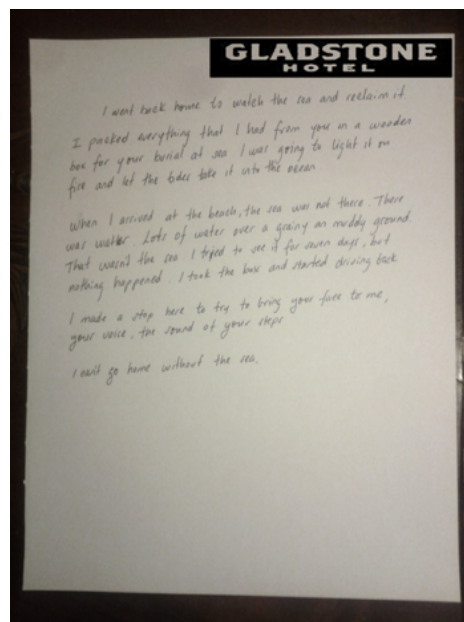 GLADSTONE
HOTEL
I went back home to watch the sea and reclaim it
I packed everything that I had from you in a wooden
box for your burial at sea. I was going to light it on
fire and let the tides take it into the ocean
When I arrived at the beach, the sea was not there. There
was water. Lots of water over a grainy an muddy ground.
That wasn't the sea. I tried to see it for seven days, but
nothing happened. I took the box and started driving back
I made a stop here to try to bring your face to me,
your voice, the sound of your steps
I can't go home without the sea.